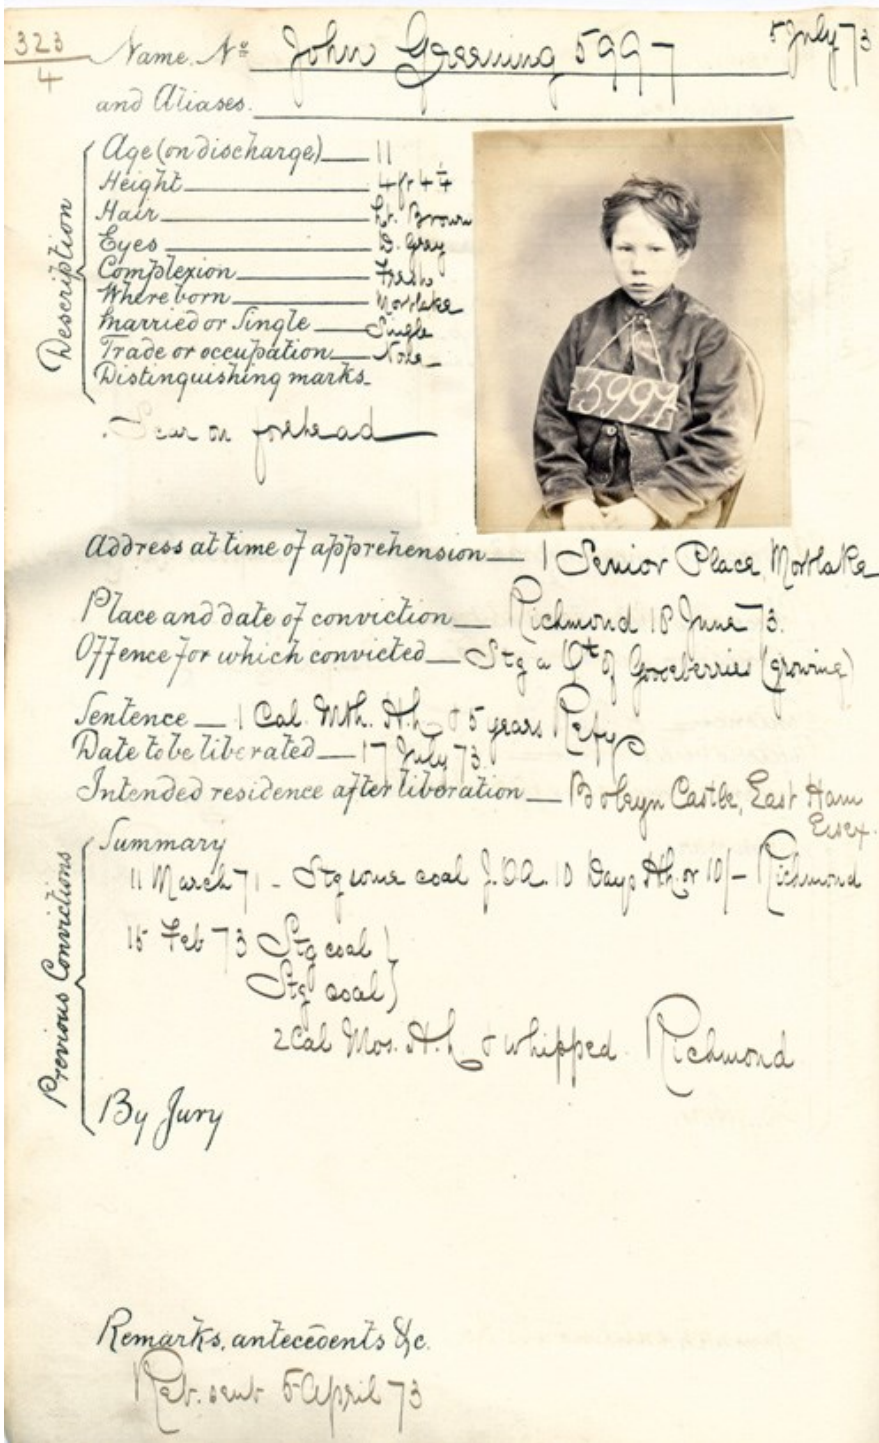 323
4
5 July 73
Name. No. John Greening 5997
and Aliases.
Description
Age (on discharge) 11
Height 4 ft 4 1/4
Hair Lt. Brown
Eyes D. Grey
Complexion Fresh
Where born Mortlake
Married or Single Single
Trade or occupation None
Distinguishing marks
Scar on forehead
5997
Address at time of apprehension 1 Senior Place, Mortlake
Place and date of conviction Richmond 18 June 73.
Offence for which convicted Stg a Qt of Gooseberries (growing)
Sentence 1 Cal. Mth. H.L. & 5 years Refy
Date to be liberated 17 July 73.
Intended residence after liberation Boleyn Castle, East Ham
Essex.
Previous Convictions
Summary
11 March 71 - Stg some coal 10 Days H.L. or 10/- Richmond
15 Feb 73 Stg coal }
Stg coal }
2 Cal Mos. H.L. & whipped. Richmond
By Jury
Remarks, antecedents &c.
5 April 73